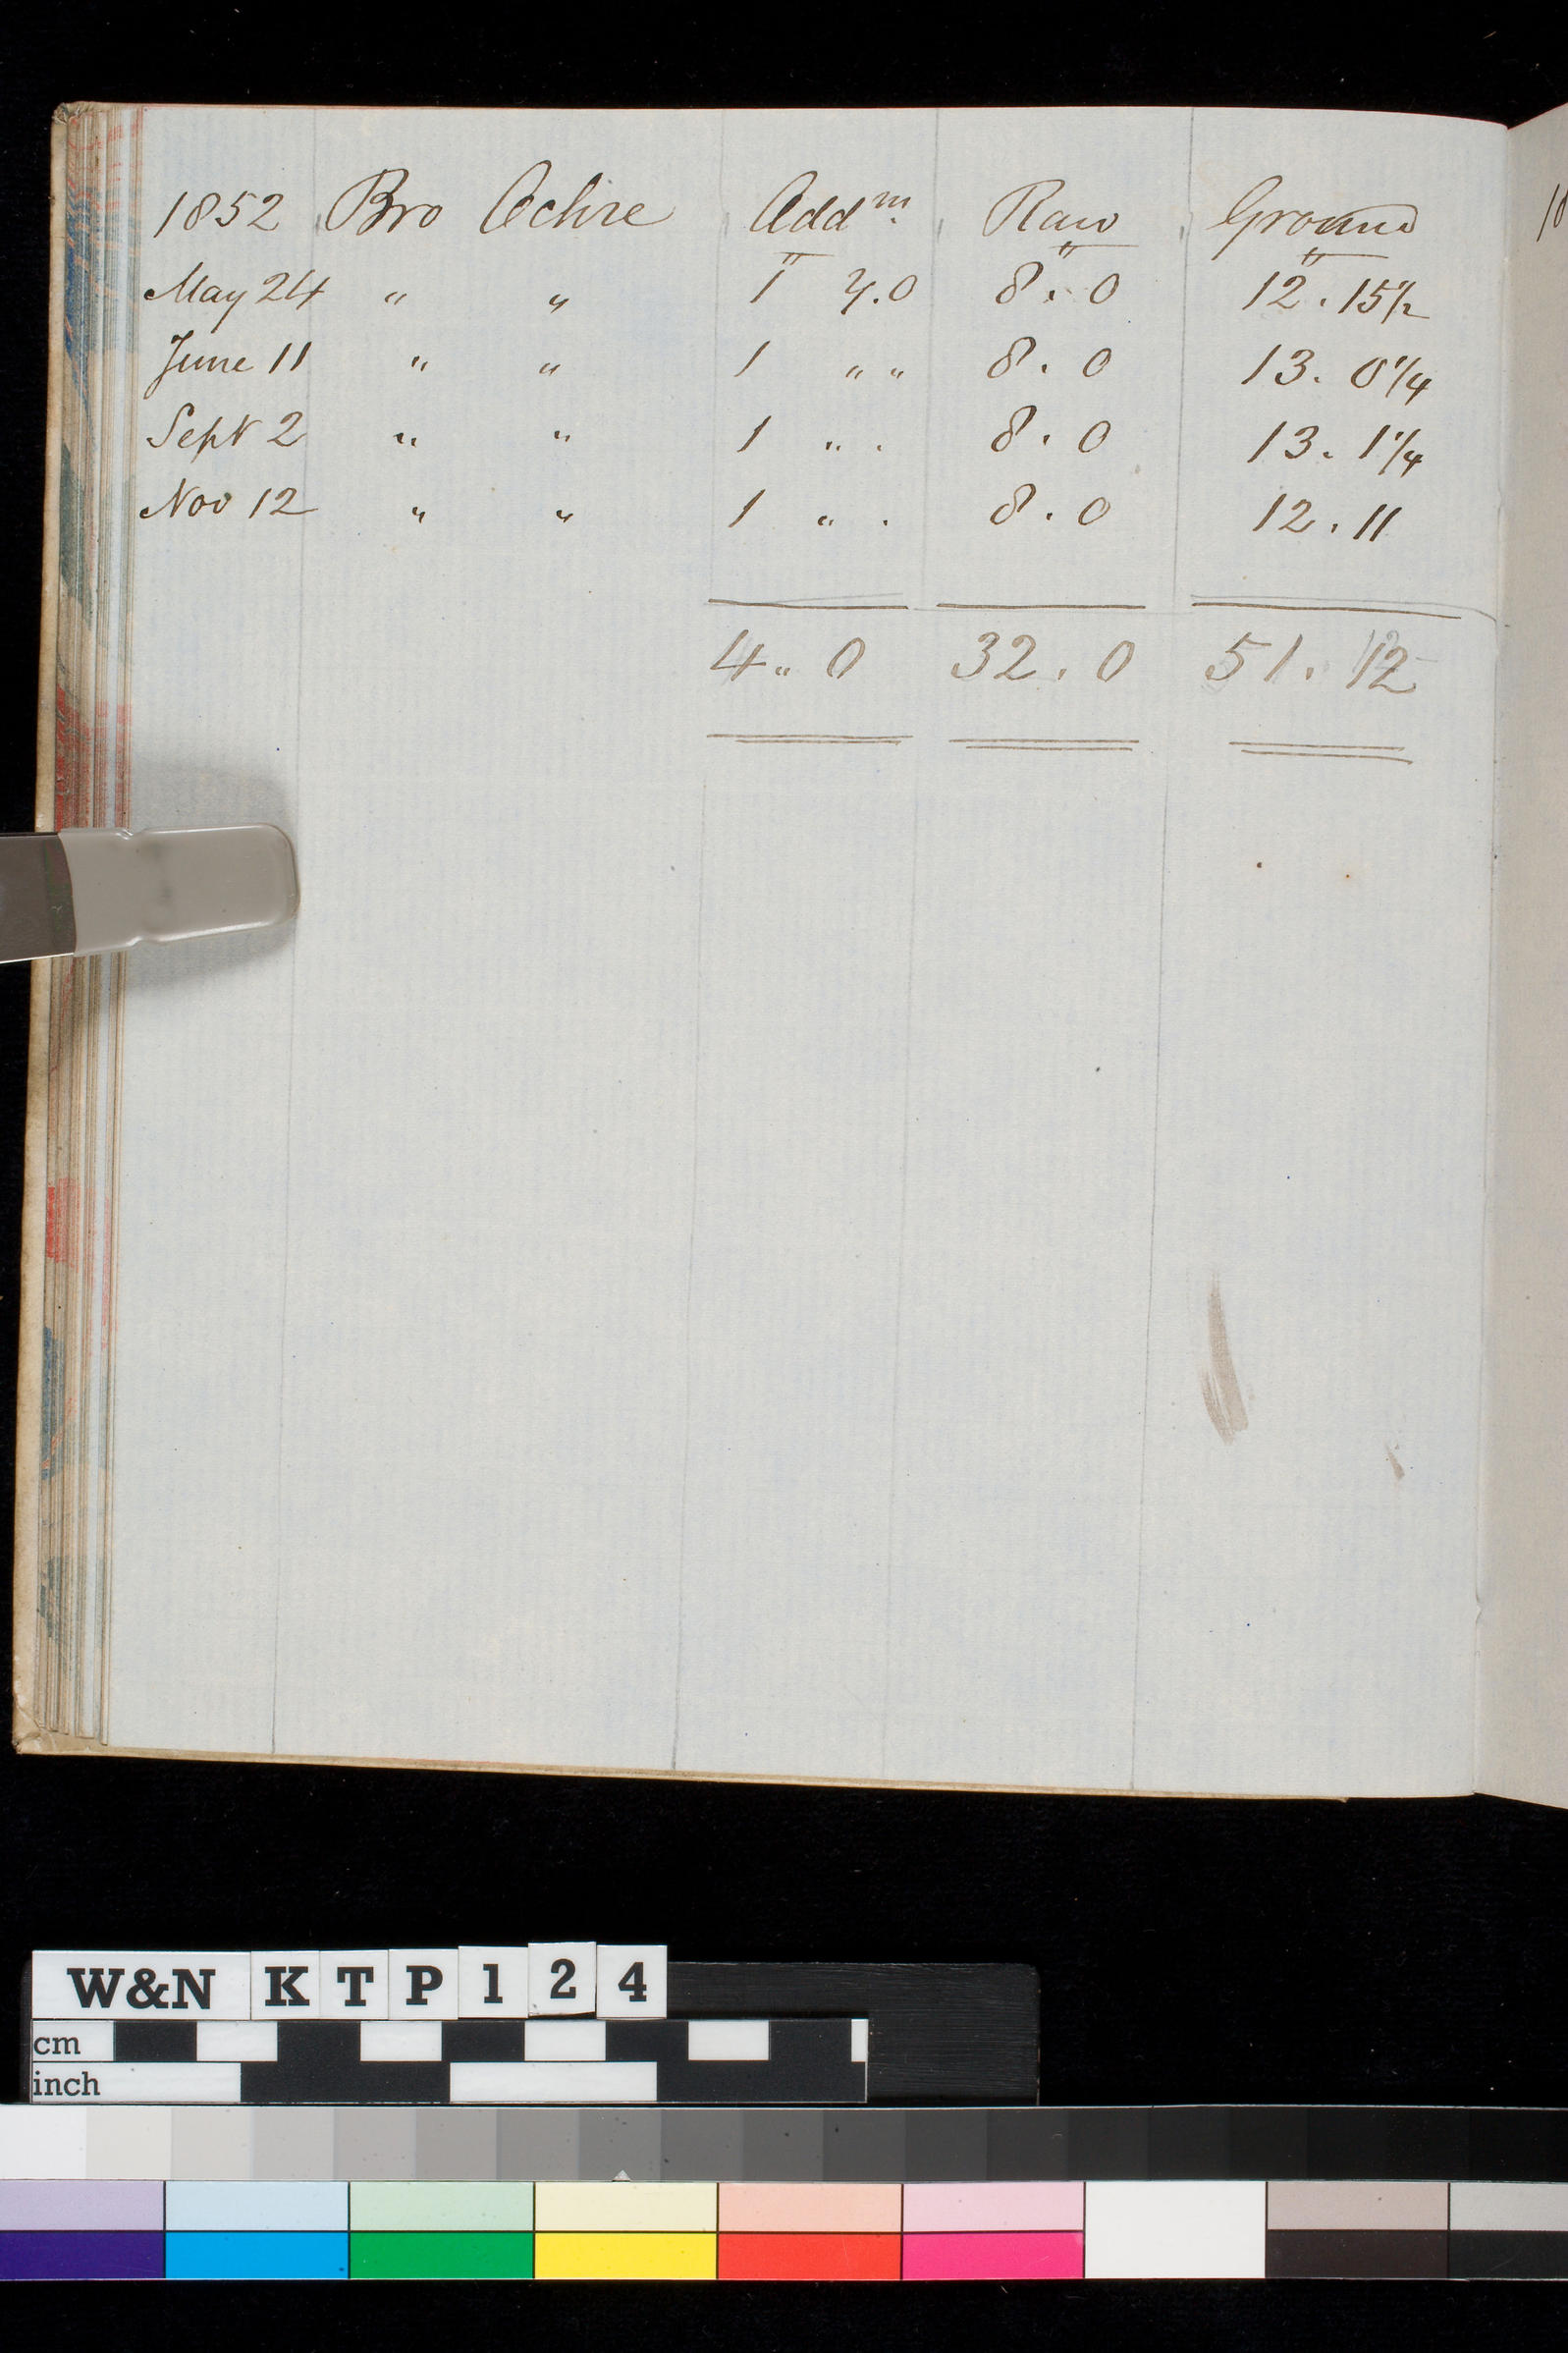 1852 Bro Ochre Addm. Raw Ground
" " "
May 24 " " 1 y.0 8.0 12.15½
June 11 " " 1 " " 8.0 13.0¼
Sept 2 " " 1 " . 8.0 13.1¼
Nov 12 " " 1 " . 8.0 12.11
4 " 0 32.0 51.12
W&N KTP124
cm
inch